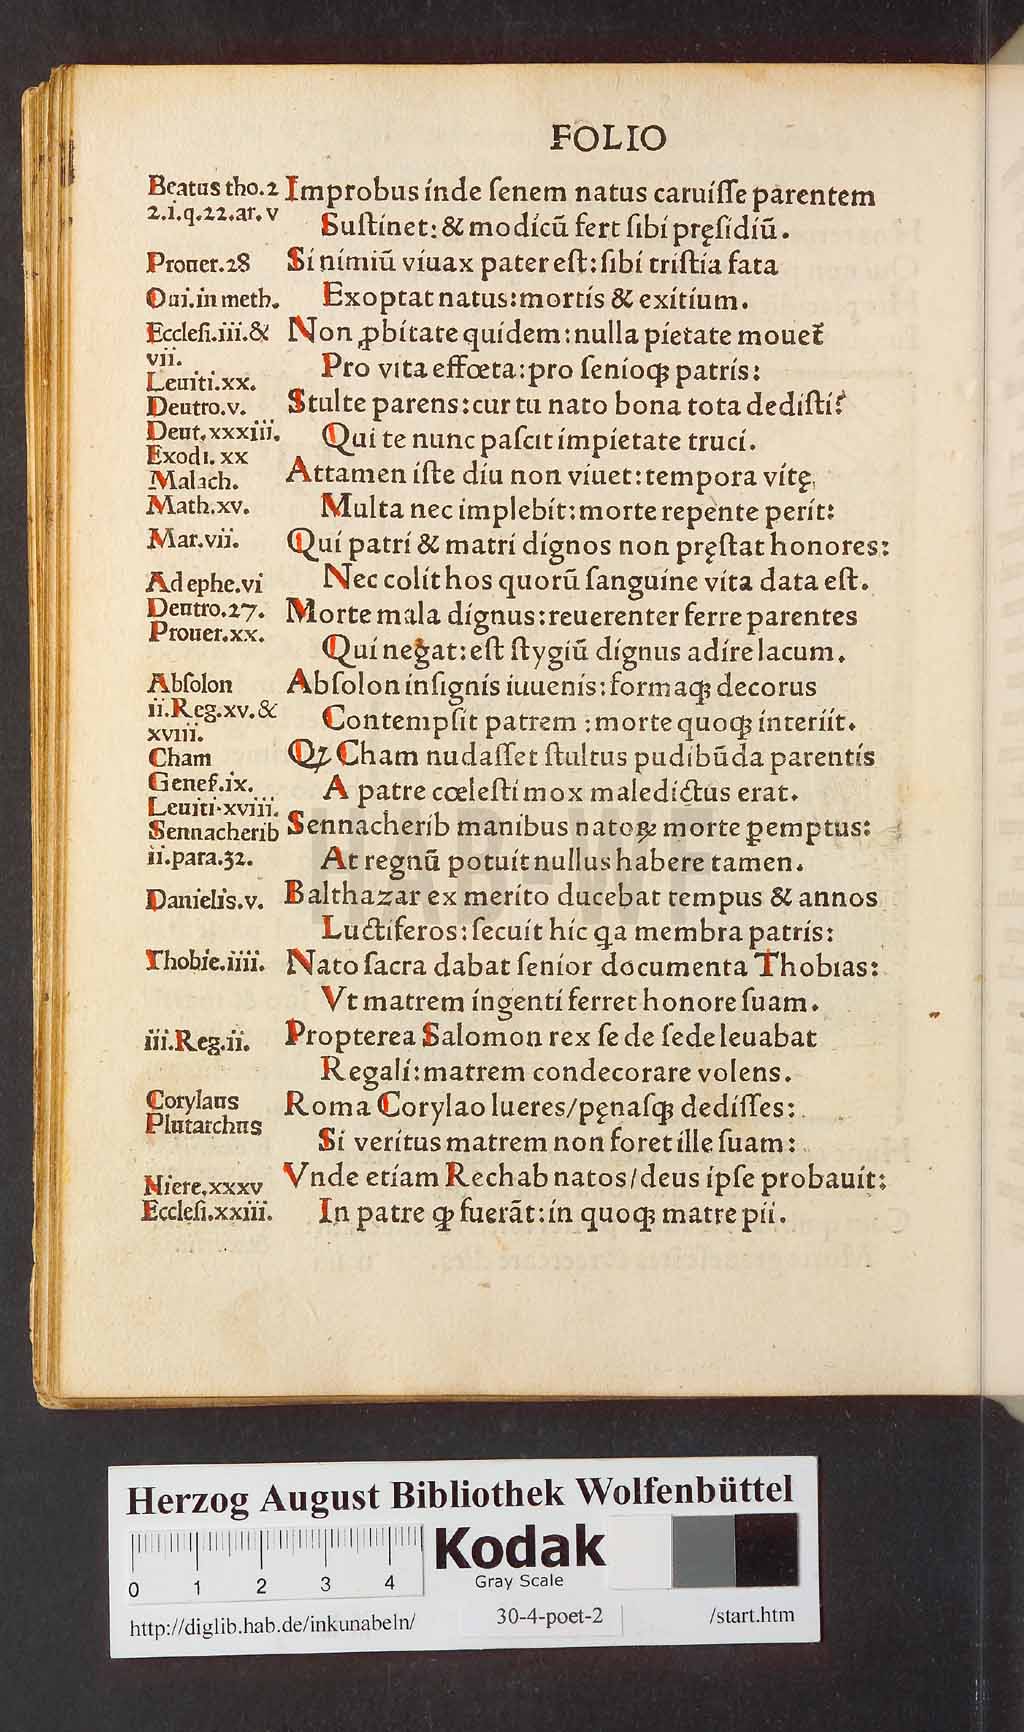 FOLIO
Beatus tho.2
2.i.q.22.ar.v
Prouer.28
Oui.in meth.
Ecclesi.iii.&
vii.
Leuiti.xx.
Deutro.v.
Deut.xxxiii.
Exodi.xx
Malach.
Math.xv.
Mar.vii.
Ad ephe.vi
Deutro.27.
Prouer.xx.
Absolon
ii.Reg.xv.&
xviii.
Cham
Genes.ix.
Leuiti.xviii.
Sennacherib
ii.para.32.
Danielis.v.
Thobie.iiii.
iii.Reg.ii.
Corylaus
Plutarchus
Niere.xxxv
Ecclesi.xxiii.
Improbus inde ſenem natus caruiſſe parentem
Suſtinet: & modicũ fert ſibi pręſidiũ.
Si nimiũ viuax pater eſt: ſibi triſtia fata
Exoptat natus: mortis & exitium.
Non ꝓbitate quidem: nulla pietate mouet᷑
Pro vita effœta: pro ſenioqꝫ patris:
Stulte parens: cur tu nato bona tota dediſti?
Qui te nunc paſcit impietate truci.
Attamen iſte diu non viuet: tempora vitę,
Multa nec implebit: morte repente perit:
Qui patri & matri dignos non pręſtat honores:
Nec colit hos quorũ ſanguine vita data eſt.
Morte mala dignus: reuerenter ferre parentes
Qui negat: eſt ſtygiũ dignus adire lacum.
Abſolon inſignis iuuenis: formaqꝫ decorus
Contempſit patrem: morte quoqꝫ interiit.
Qꝫ Cham nudaſſet ſtultus pudibũda parentis
A patre cœleſti mox maledictus erat.
Sennacherib manibus natoꝝ morte ꝑemptus:
At regnũ potuit nullus habere tamen.
Balthazar ex merito ducebat tempus & annos
Luctiferos: ſecuit hic qa membra patris:
Nato ſacra dabat ſenior documenta Thobias:
Vt matrem ingenti ferret honore ſuam.
Propterea Salomon rex ſe de ſede leuabat
Regali: matrem condecorare volens.
Roma Corylao lueres/pęnaſqꝫ dediſſes:
Si veritus matrem non foret ille ſuam:
Vnde etiam Rechab natos/deus ipſe probauit:
In patre ꝙ fuerãt: in quoqꝫ matre pii.
HAB-WF
Herzog August Bibliothek Wolfenbüttel
0 1 2 3 4
Kodak
Gray Scale
http://diglib.hab.de/inkunabeln/ 30-4-poet-2 /start.htm